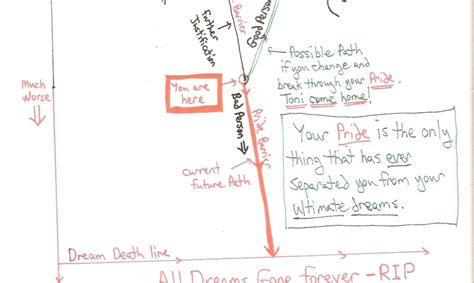 further
Justification
Barrier
Good Person
Possible Path
if you change and
break through your Pride.
Toni come home!
You are
here
Much
Worse
Bad Person
Pride Barrier
current
future Path
Your Pride is the only
thing that has ever
Separated you from your
Ultimate dreams.
Dream Death line
All Dreams Gone forever - RIP